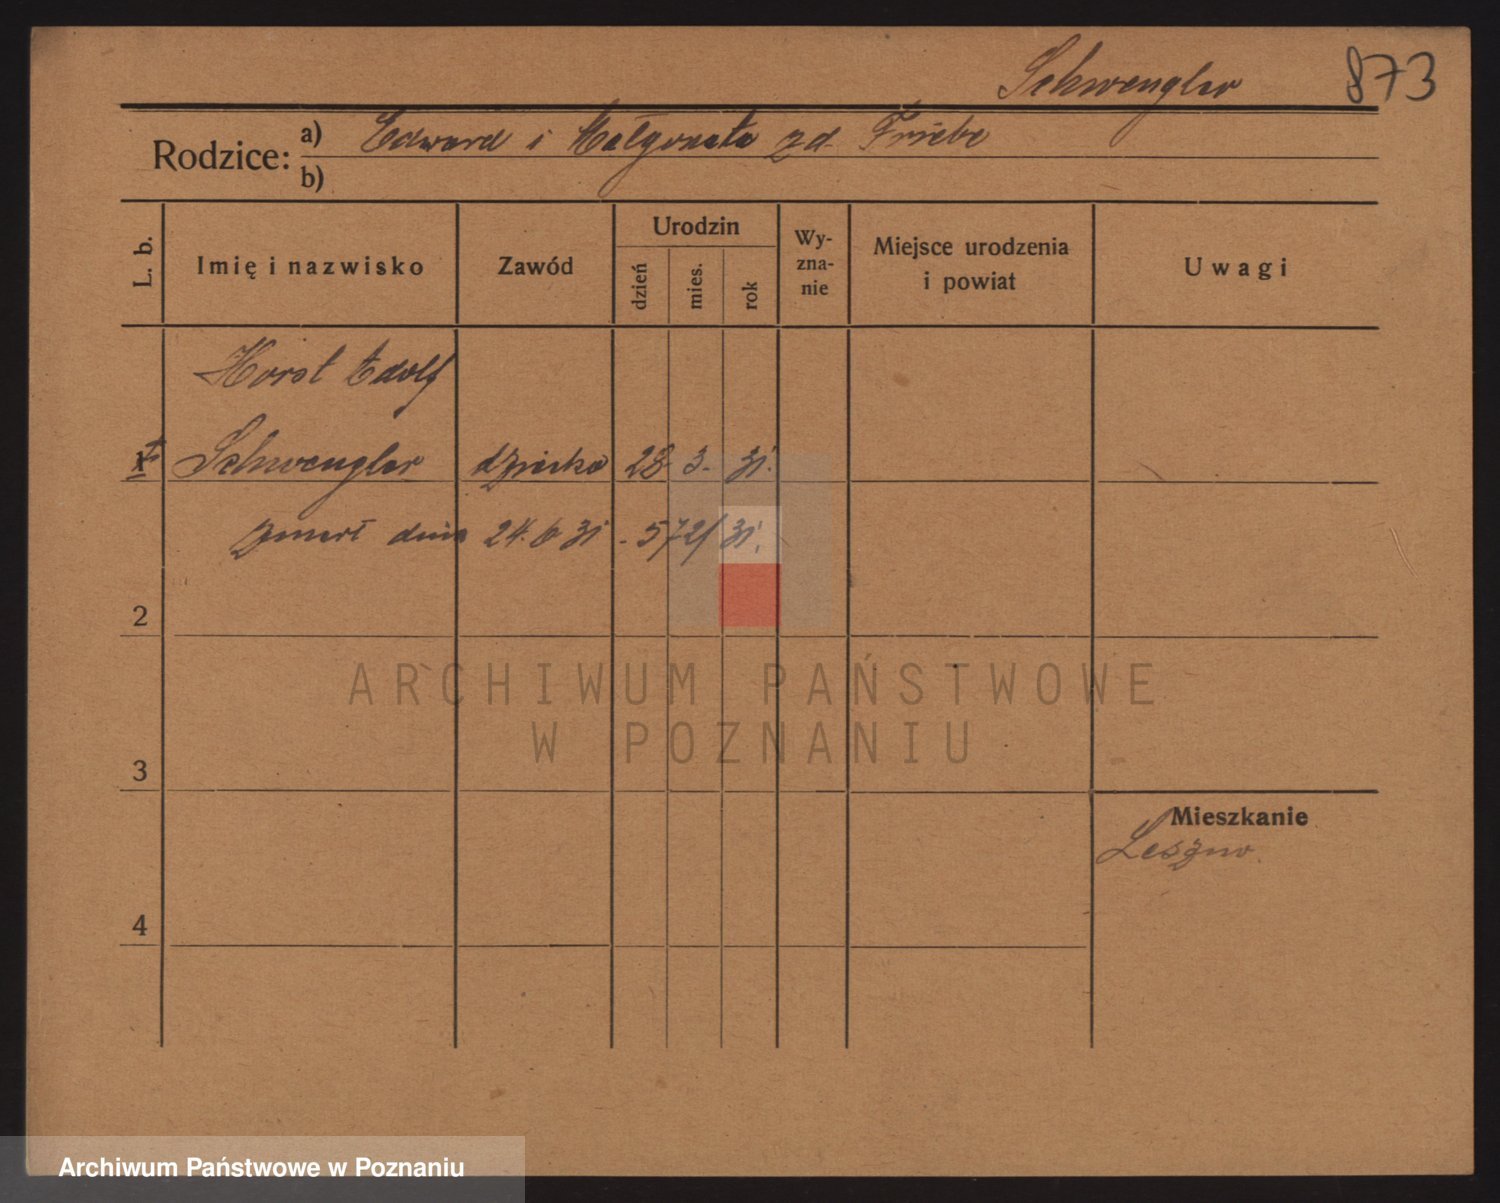 Schwengler 873
Rodzice: a) Edward i Małgorzata zd. Friebe
b)
L. b. Imię i nazwisko Zawód Urodzin dzień mies. rok Wy-zna-nie Miejsce urodzenia i powiat Uwagi
Horst Adolf
1 Schwengler dziecko 28. 3. 31.
zmarł dnia 24.6 31 - 572/31.
2
ARCHIWUM PAŃSTWOWE
W POZNANIU
3
Mieszkanie
Leszno.
4
Archiwum Państwowe w Poznaniu